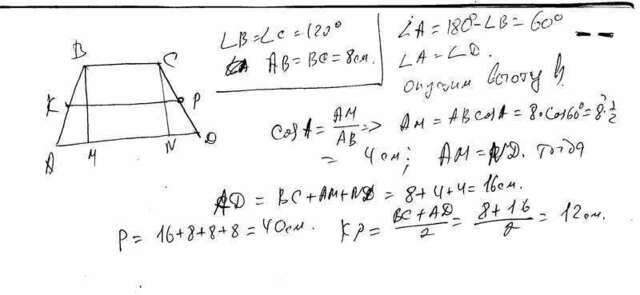 B C
K P
A M N D
∠B=∠C=120°
AB=BC=8см.
∠A=180°-∠B=60°
∠A=∠D.
Опустим высоту h
cosA=AM/AB=> AM=ABcosA=8·cos60°=8·1/2
=4см; AM=ND. Тогда
AD=BC+AM+ND=8+4+4=16см.
P=16+8+8+8=40см. KP=(BC+AD)/2=(8+16)/2=12см.